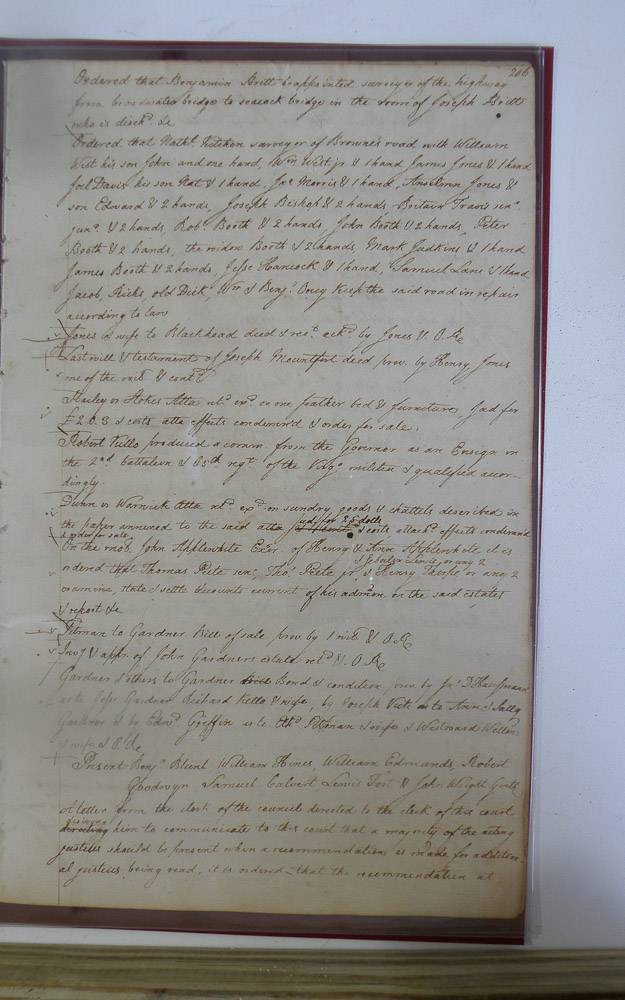 266
Ordered that Benjamin Britt be appointed surveyor of the highway
from broadwater bridge to seacock bridge in the room of Joseph Britt
who is disch.d &c
Ordered that Nath.l Kitchen surveyor of Browne's road with William
West his son John and one hand, Wm West jr & 1 hand James Jones & 1 hand
Joel Davis his son Nat & 1 hand, Jno Morris & 1 hand, Anselmn Jones &
son Edward & 2 hands, Joseph Bishop & 2 hands Britain Travis senr.
junr. & 2 hands, Rob. Booth & 2 hands John Booth & 2 hands, Peter
Booth & 2 hands, the widow Booth & 2 hands, Mark Judkins & 1 hand
James Booth & 2 hands, Jesse Hancock & 1 hand, Samuel Lane & 1 hand
Jacob, Ricks, old Dick, Wm & Benj.a Oney keep the said road in repair
according to law
Jones & wife to Blackhead deed & rect. ackd. by Jones & O.Re
Last will & testament of Joseph Mountfort decd prov. by Henry Jones
one of the witt. & contd.
Hailey vs Stokes Atta retd. exd. on one feather bed & furniture, Jud for
£2.0.3 & costs atta effects condemn'd & order for sale.
Robert Kello produced a comm from the Governor as an Ensign in
the 2nd battalion & 65th regt. of the Virga. militia & qualified accor-
dingly.
Dunn vs Warwick Atta retd. exd. on sundry goods & chattels described in
the paper annexed to the said atta Jud for 28 dolls & costs attachd. effects condemnd
& order for sale
On the mo. of John Applewhite Exr. of Henry & Ann Applewhite it is
ordered that Thomas Pete senr. Tho. Pete jr. & Henry Thorpe or any 2
examine, state & settle accounts current of his admon. on the said estates
& report &c
Pitman to Gardner Bill of sale prov. by 1 wit & O.Re
Invy. & appr. of John Gardners estate retd. & O.Re
Gardner & others to Gardner Bond & condition, prov. by Jno. D. Haussmann
as to Jesse Gardner Richard Kello & wife, by Joseph Vick as to Ann & Sally
Gardner & by Edwd. Griffin as to Pitman & wife & Westward
& wife & O.Re
Present Benj.a Blunt William Hines, William Edmunds, Robert
Goodwyn Samuel Calvert Lewis Fort & John Wright Gentl
A letter from the clerk of the council directed to the clerk of this court
desiring him to communicate to this court that a majority of the acting
justices should be present when a recommendation is made for addition
al justices, being read, it is ordered that the recommendation at